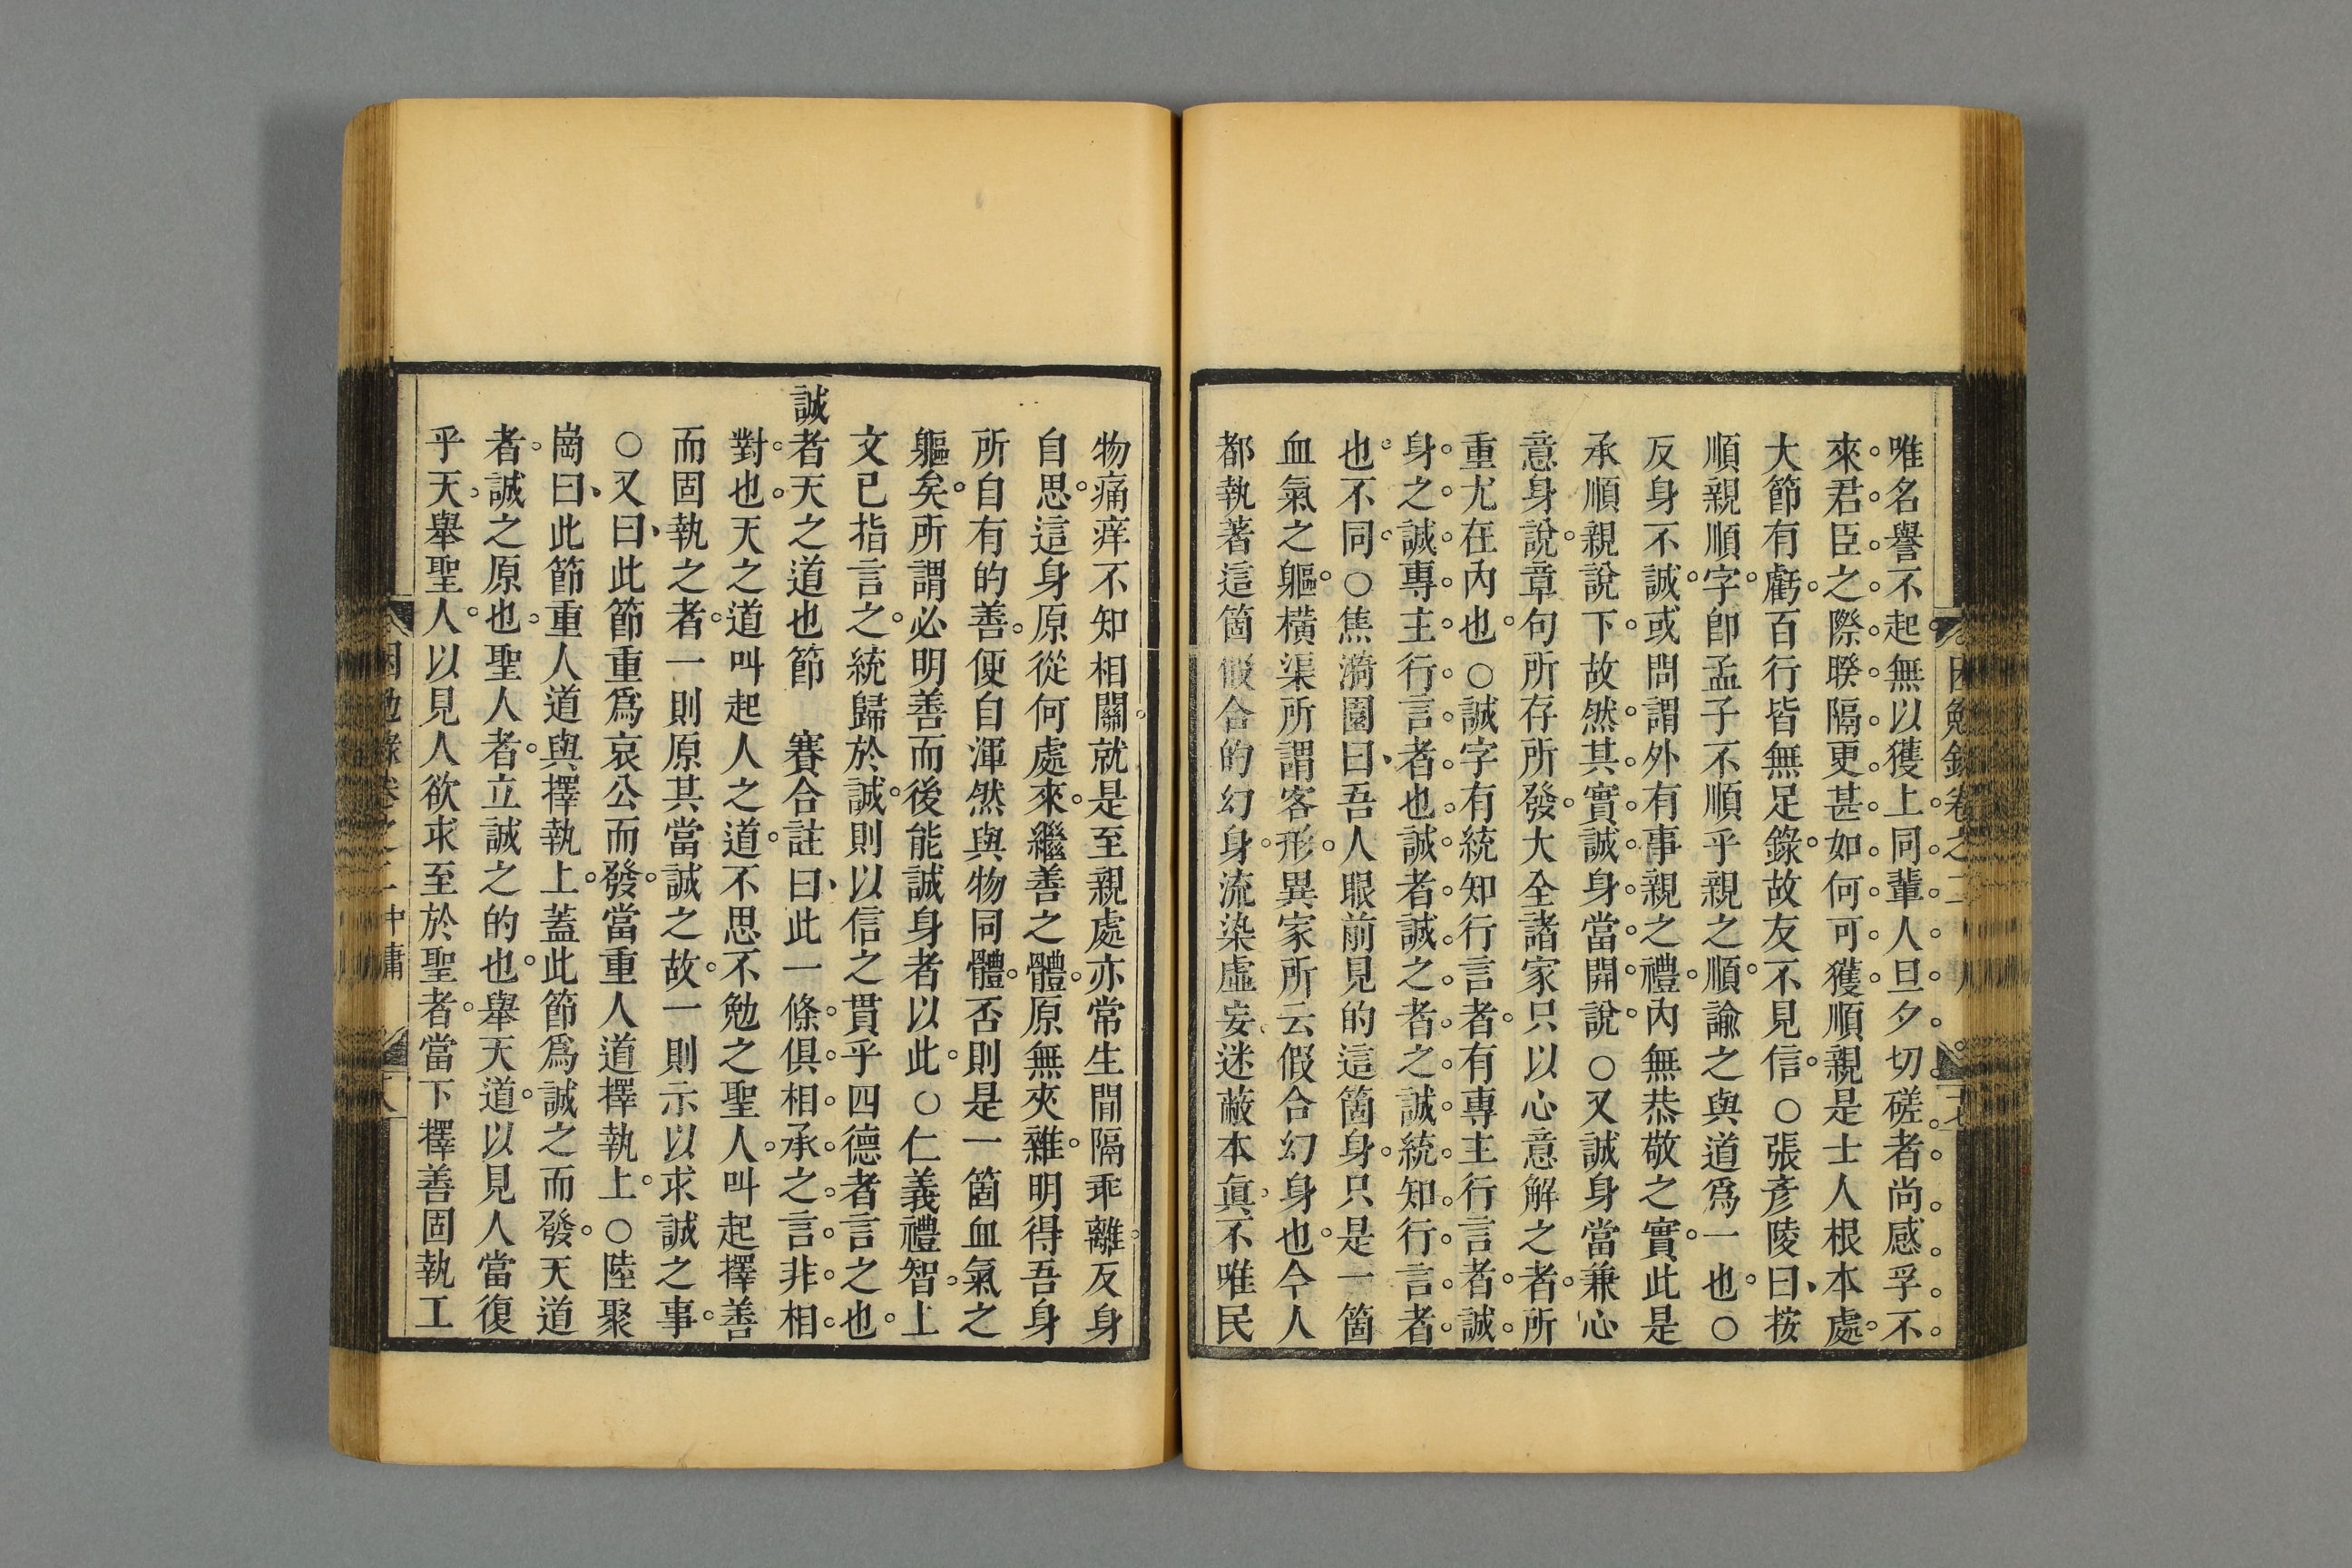 唯名譽不起無以獲上同輩人旦夕切磋者尚感孚不
來君臣之際暌隔更甚如何可獲順親是士人根本處
大節有虧百行皆無足錄故友不見信○張彥陵曰按
順親順字卽孟子不順乎親之順諭之與道爲一也○
反身不誠或問謂外有事親之禮內無恭敬之實此是
承順親說下故然其實誠身當開說○又誠身當兼心
意身說章句所存所發大全諸家只以心意解之者所
重尤在內也○誠字有統知行言者有專主行言者誠
身之誠專主行言者也誠者誠之者之誠統知行言者
也不同○焦漪園曰吾人眼前見的這箇身只是一箇
血氣之軀橫渠所謂客形異家所云假合幻身也今人
都執著這箇假合的幻身流染虛妄迷蔽本眞不唯民
物痛痒不知相關就是至親處亦常生間隔乖離反身
自思這身原從何處來繼善之體原無夾雜明得吾身
所自有的善便自渾然與物同體否則是一箇血氣之
軀矣所謂必明善而後能誠身者以此○仁義禮智上
文已指言之統歸於誠則以信之貫乎四德者言之也
誠者天之道也節　賽合註曰此一條俱相承之言非相
對也天之道叫起人之道不思不勉之聖人叫起擇善
而固執之者一則原其當誠之故一則示以求誠之事
○又曰此節重爲哀公而發當重人道擇執上○陸聚
崗曰此節重人道與擇執上蓋此節爲誠之而發天道
者誠之原也聖人者立誠之的也舉天道以見人當復
乎天舉聖人以見人欲求至於聖者當下擇善固執工